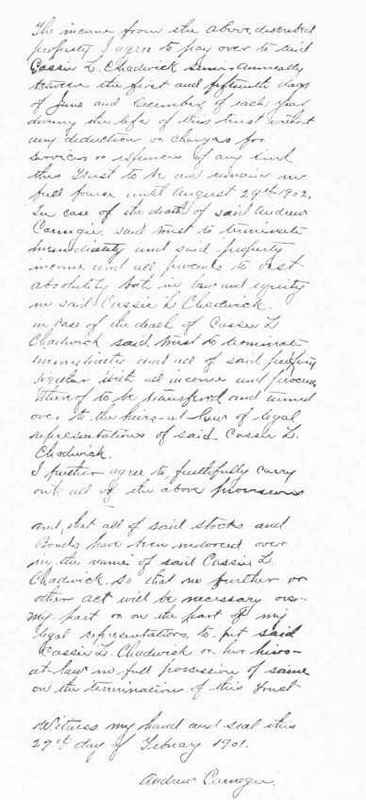 The income from the above described
property I agree to pay over to said
Cassie L. Chadwick semi-annually
between the first and fifteenth days
of June and December of each year
during the life of this trust without
any deduction or charges for
services or expences of any kind
this Trust to be and remain in
full force until August 29th 1902.
In case of the death of said Andrew
Carnegie said trust to terminate
immediately and said property
income and all proceeds to vest
absolutely both in law and equity
in said Cassie L. Chadwick.
in case of the death of Cassie L.
Chadwick said trust to terminate
immediately and all of said property
together with all income and proceeds
thereof to be transferred and turned
over to the heirs-at law of legal
representations of said Cassie L.
Chadwick.
I further agree to faithfully carry
out all of the above provisions
and that all of said stocks and
Bonds have been indorced over
in the name of said Cassie L
Chadwick so that no further or
other act will be necessary on
my part or on the part of my
legal representations to put said
Cassie L. Chadwick or her heirs-
at-law in full possession of same
on the termination of this trust
Witness my hand and seal this
27th day of Febuary 1901.
Andrew Carnegie.